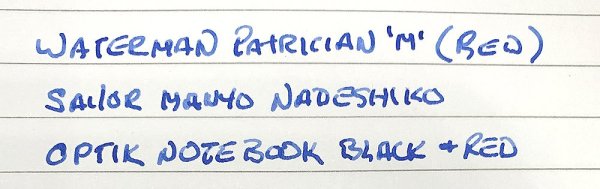 WATERMAN PATRICIAN 'M' (RED)
SAILOR MANYO NADESHIKO
OPTIK NOTEBOOK BLACK + RED